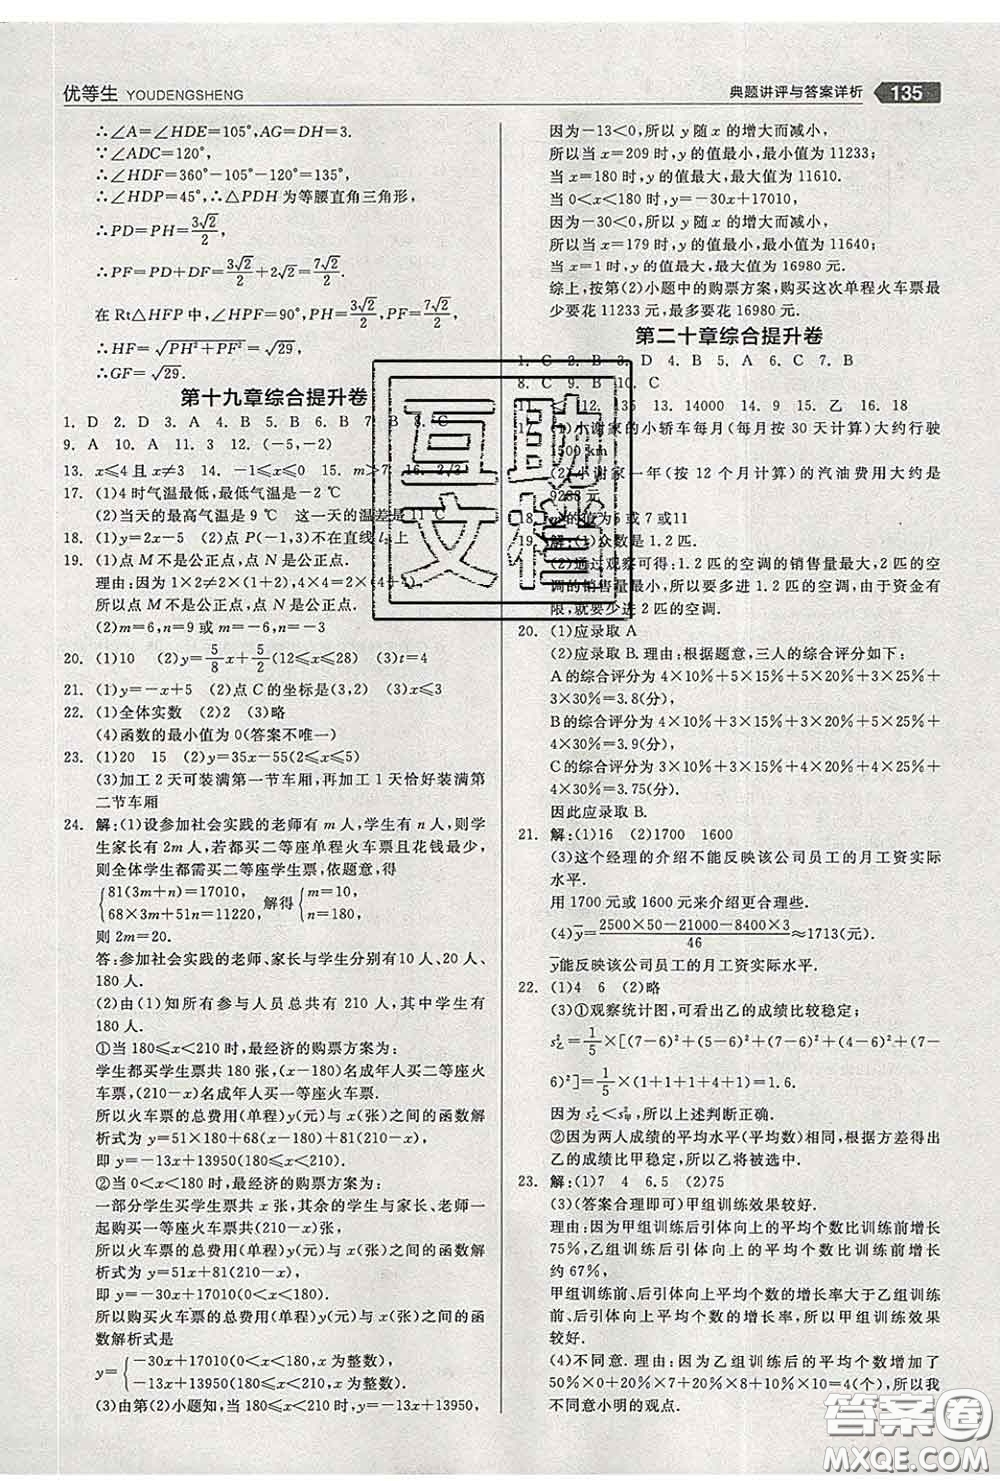 优等生 YOUDENGSHENG
典题讲评与答案详析 135
∴∠A=∠HDE=105°,AG=DH=3.
∵∠ADC=120°,
∴∠HDF=360°-105°-120°=135°,
∴∠HDP=45°,∴△PDH 为等腰直角三角形,
∴PD=PH=3√2/2,
∴PF=PD+DF=3√2/2+2√2=7√2/2.
在 Rt△HFP 中,∠HPF=90°,PH=3√2/2,PF=7√2/2,
∴HF=√(PH²+PF²)=√29,
∴GF=√29.
第十九章综合提升卷
1. D 2. D 3. A 4. A 5. B 6. B 7. B 8. C
9. A 10. A 11. 3 12. (-5,-2)
13. x≤4 且 x≠3 14. -1≤x≤0 15. m>7 16. 2/3
17. (1)4 时气温最低,最低气温是-2 ℃
(2)当天的最高气温是 9 ℃ 这一天的温差是11 ℃
18. (1)y=2x-5 (2)点 P(-1,3)不在直线 l₁上
19. (1)点 M 不是公正点,点 N 是公正点.
理由:因为 1×2≠2×(1+2),4×4=2×(4+4),
所以点 M 不是公正点,点 N 是公正点.
(2)m=6,n=9 或 m=-6,n=-3
20. (1)10 (2)y=5/8x+5/2(12≤x≤28) (3)t=4
21. (1)y=-x+5 (2)点 C 的坐标是(3,2) (3)x≤3
22. (1)全体实数 (2)2 (3)略
(4)函数的最小值为 0(答案不唯一)
23. (1)20 15 (2)y=35x-55(2≤x≤5)
(3)加工 2 天可装满第一节车厢,再加工 1 天恰好装满第
二节车厢
24. 解:(1)设参加社会实践的老师有 m 人,学生有 n 人,则学
生家长有 2m 人,若都买二等座单程火车票且花钱最少,
则全体学生都需买二等座学生票,依题意,得
{81(3m+n)=17010, 68×3m+51n=11220, 解得{m=10, n=180,
则 2m=20.
答:参加社会实践的老师、家长与学生分别有10 人、20 人、
180 人.
(2)由(1)知所有参与人员总共有 210 人,其中学生有
180 人.
①当 180≤x<210 时,最经济的购票方案为:
学生都买学生票共 180 张,(x-180)名成年人买二等座火
车票,(210-x)名成年人买一等座火车票,
所以火车票的总费用(单程)y(元)与 x(张)之间的函数解
析式为 y=51×180+68(x-180)+81(210-x),
即 y=-13x+13950(180≤x<210).
②当 0<x<180 时,最经济的购票方案为:
一部分学生买学生票共 x 张,其余的学生与家长、老师一
起购买一等座火车票共(210-x)张,
所以火车票的总费用(单程)y(元)与 x(张)之间的函数解
析式为 y=51x+81(210-x),
即 y=-30x+17010(0<x<180).
所以购买火车票的总费用(单程)y(元)与 x(张)之间的函
数解析式是
y={-30x+17010(0<x<180,x为整数), -13x+13950(180≤x<210,x为整数).
(3)由第(2)小题知,当 180≤x<210 时,y=-13x+13950,
因为-13<0,所以 y 随 x 的增大而减小,
所以当 x=209 时,y 的值最小,最小值为 11233;
当 x=180 时,y 的值最大,最大值为 11610.
当 0<x<180 时,y=-30x+17010,
因为-30<0,所以 y 随 x 的增大而减小,
所以当 x=179 时,y 的值最小,最小值为 11640;
当 x=1 时,y 的值最大,最大值为 16980 元.
综上,按第(2)小题中的购票方案,购买这次单程火车票最
少要花 11233 元,最多要花 16980 元.
第二十章综合提升卷
1. C 2. B 3. D 4. B 5. A 6. C 7. B
8. C 9. B 10. C
11. < 12. 135 13. 14000 14. 9 15. 乙 16. 18
17. (1)小谢家的小轿车每月(每月按 30 天计算)大约行驶
1500 km
(2)小谢家一年(按 12 个月计算)的汽油费用大约是
9288 元
18. m 的值为5 或 7 或11
19. 解:(1)众数是 1.2 匹.
(2)通过观察可得:1.2 匹的空调的销售量最大,2 匹的空
调的销售量最小,所以要多进 1.2 匹的空调,由于资金有
限,就要少进 2 匹的空调.
20. (1)应录取 A
(2)应录取 B. 理由:根据题意,三人的综合评分如下:
A的综合评分为 4×10%+5×15%+5×20%+3×25%+
3×30%=3.8(分),
B的综合评分为 4×10%+3×15%+4×20%+4×25%+
4×30%=3.9(分),
C的综合评分为 4×10%+4×15%+4×20%+3×25%+
4×30%=3.75(分).
因此应录取 B.
21. 解:(1)16 (2)1700 1600
(3)这个经理的介绍不能反映该公司员工的月工资实际
水平.
用 1700 元或 1600 元来介绍更合理些.
(4)y̅=(2500×50-21000-8400×3)/46≈1713(元).
y̅能反映该公司员工的月工资实际水平.
22. (1)4 6 (2)略
(3)①观察统计图,可看出乙的成绩比较稳定;
s²乙=1/5×[(7-6)²+(5-6)²+(7-6)²+(5-6)²+(7-
-6)²]=1/5×(1+1+4+1+1)=1.6.
因为 s²乙<s²甲,所以上述判断正确.
②因为两人成绩的平均水平(平均数)相同,根据方差得出
乙的成绩比甲稳定,所以乙将被选中.
23. 解:(1)7 4 6.5 (2)75
(3)(答案合理即可)甲组训练效果较好.
理由:因为甲组训练后引体向上的平均个数比训练前增长
75%,乙组训练后引体向上的平均个数比训练前增长
约 67%,
甲组训练前、后引体向上平均个数的增长率大于乙组训练
前、后引体向上平均个数的增长率,所以甲组训练效果
较好.
(4)不同意. 理由:因为乙组训练后的平均个数增加了
50%×0+20%×7+20%×8+10%×10=4(个),所以我
不同意小明的观点.
互助
文档
答案圈
MXQE.COM